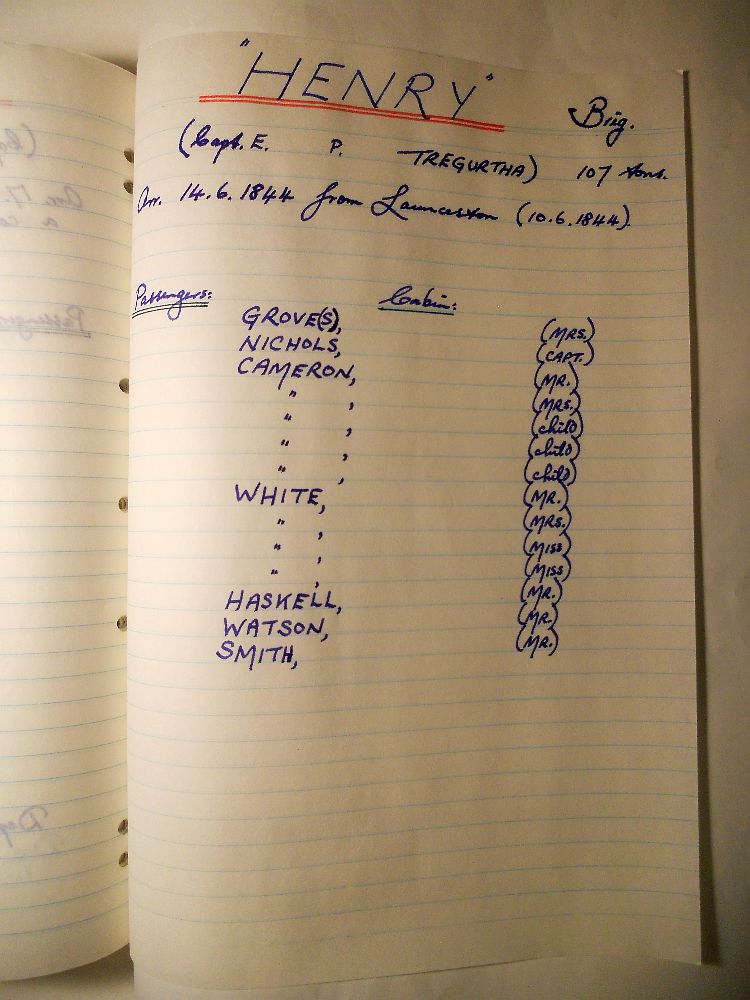 "HENRY" Brig.
(Capt. E. P. TREGURTHA) 107 tons.
Arr. 14.6.1844 from Launceston (10.6.1844)
Passengers: Cabin:
GROVE(S), (MRS.)
NICHOLS, (CAPT.)
CAMERON, (MR.)
" , (MRS.)
" , (child)
" , (child)
" , (child)
WHITE, (MR.)
" , (MRS.)
" , (MISS)
" , (MISS)
HASKELL, (MR.)
WATSON, (MR.)
SMITH, (MR.)